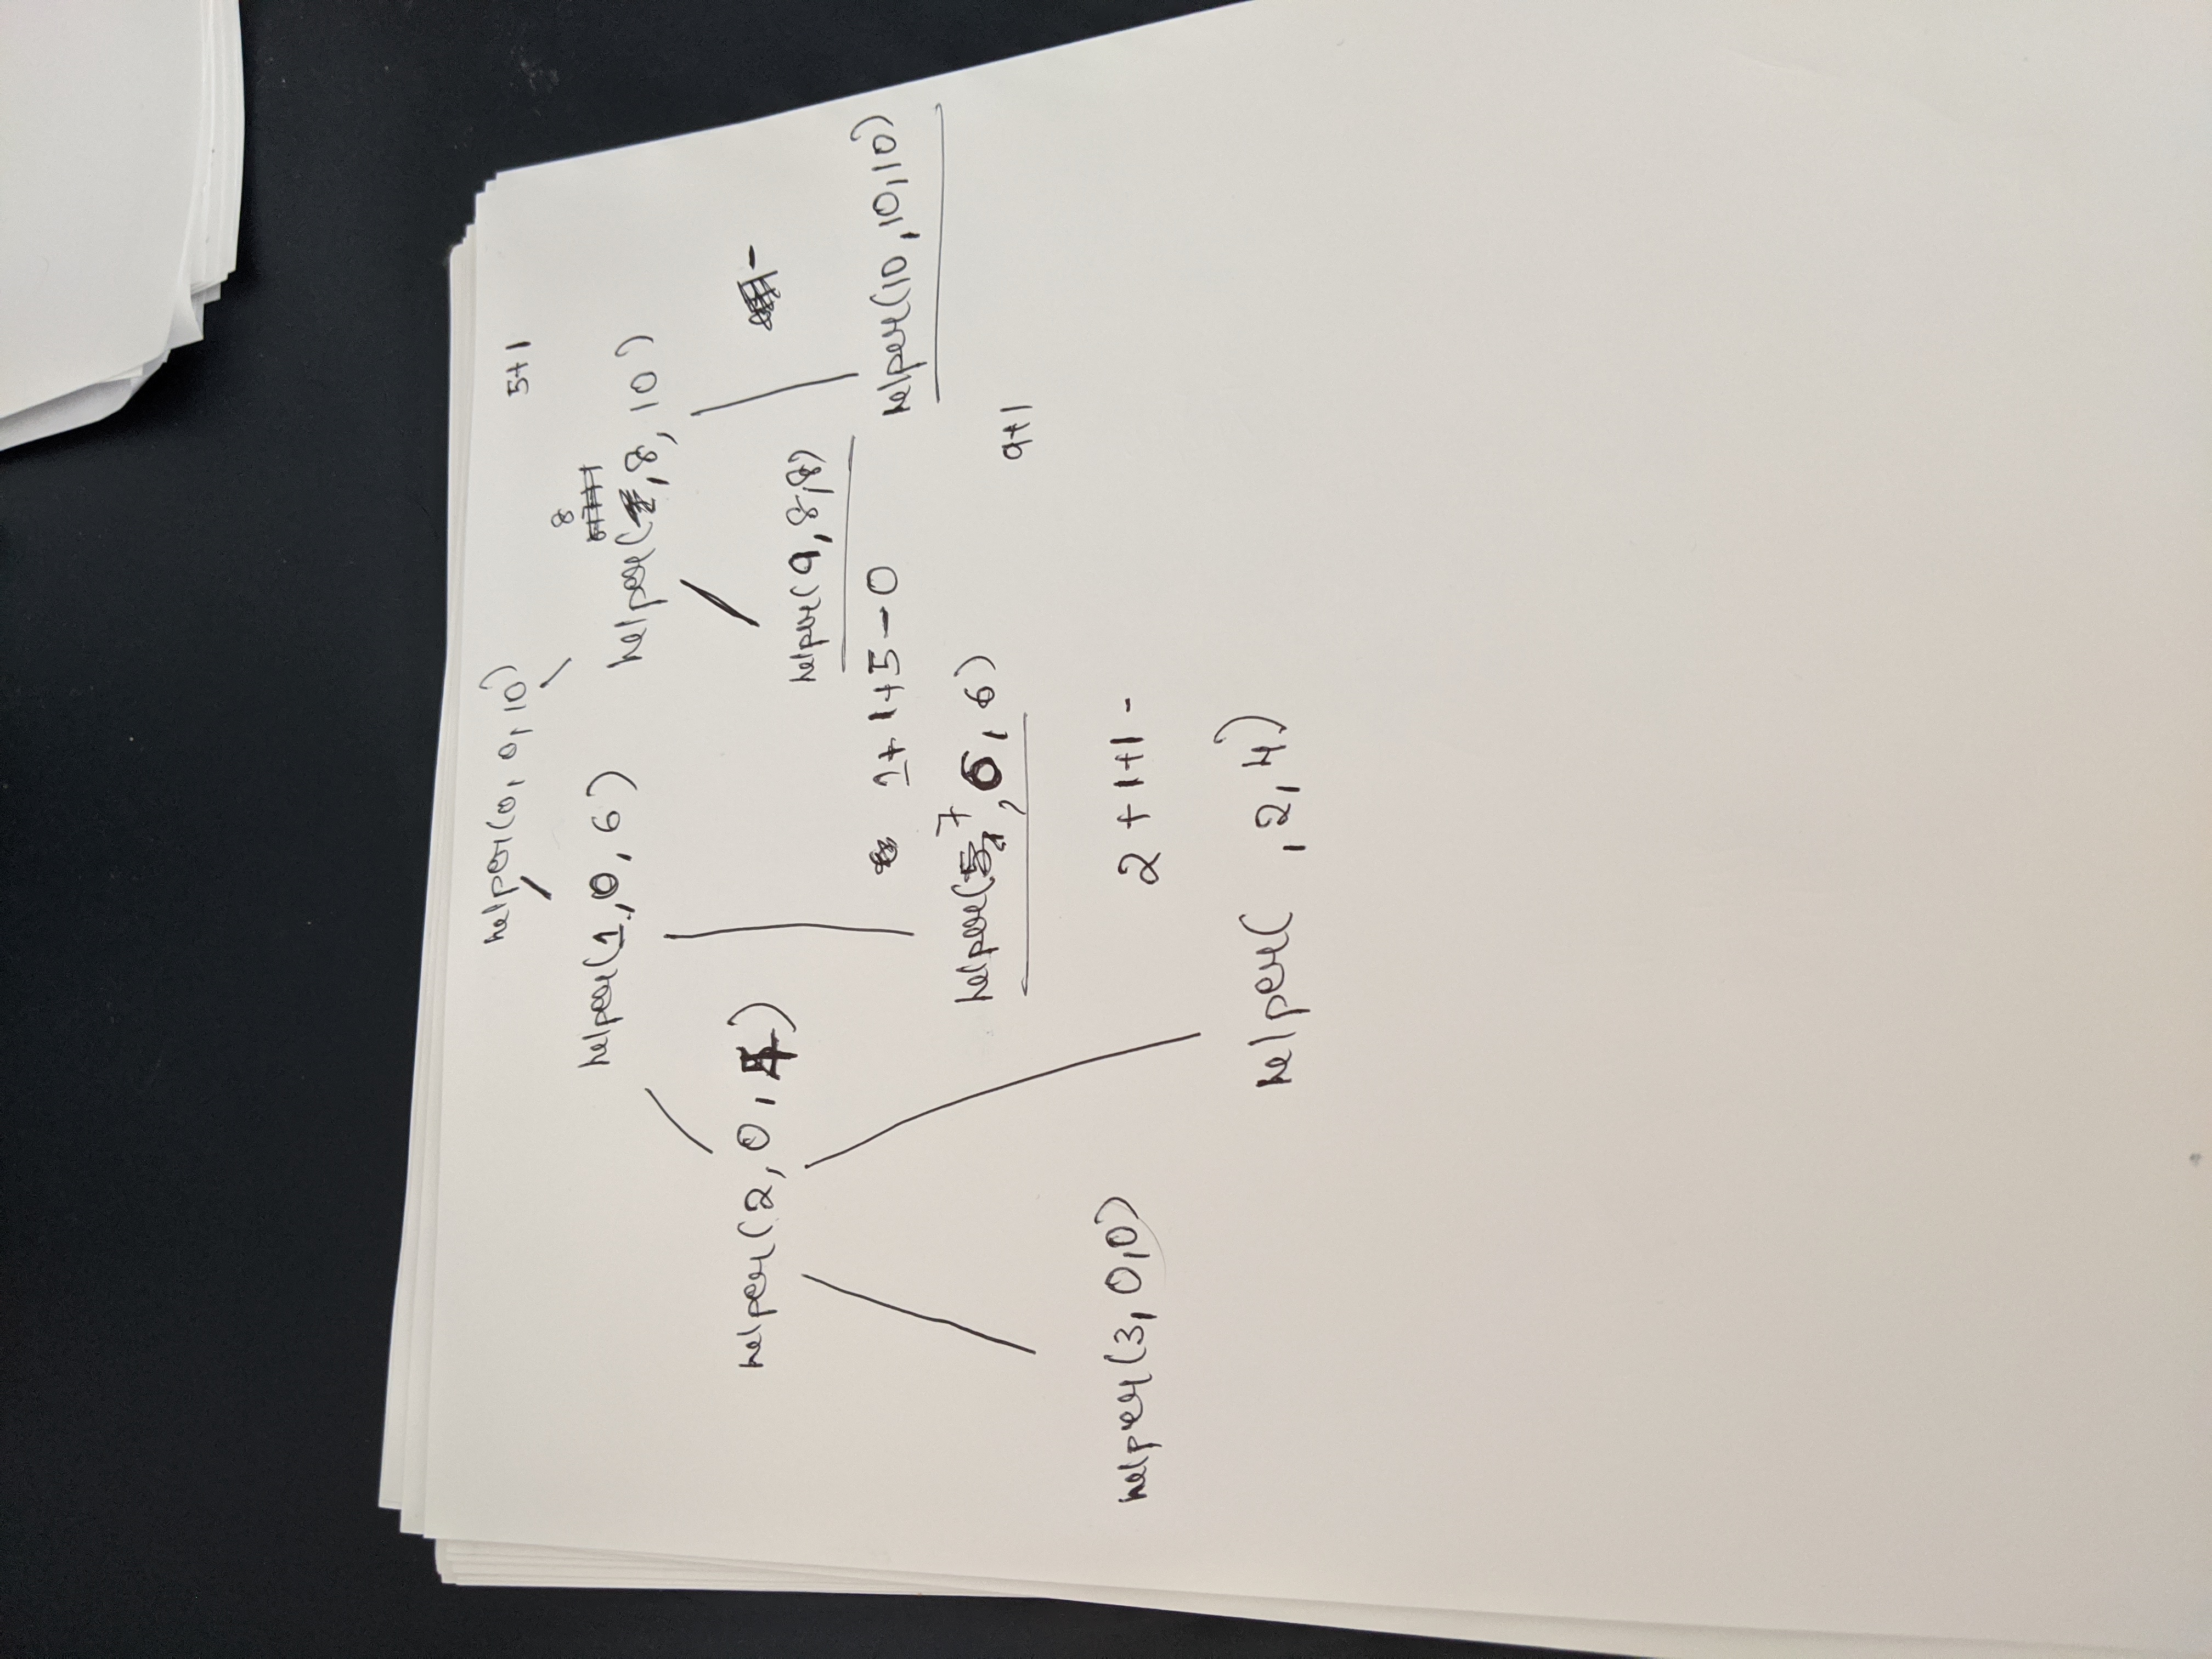 helper(0, 0, 10)
5+1
8
helper(1, 0, 6)
helper( , 8, 10)
helper(2, 0, 4)
-
helper(9, 8, 8)
1+1+5-0
helper(10, 10, 10)
helper( 7, 6, 6)
9+1
helper(3, 0, 0)
2+1+1-
helper( , 2, 4)